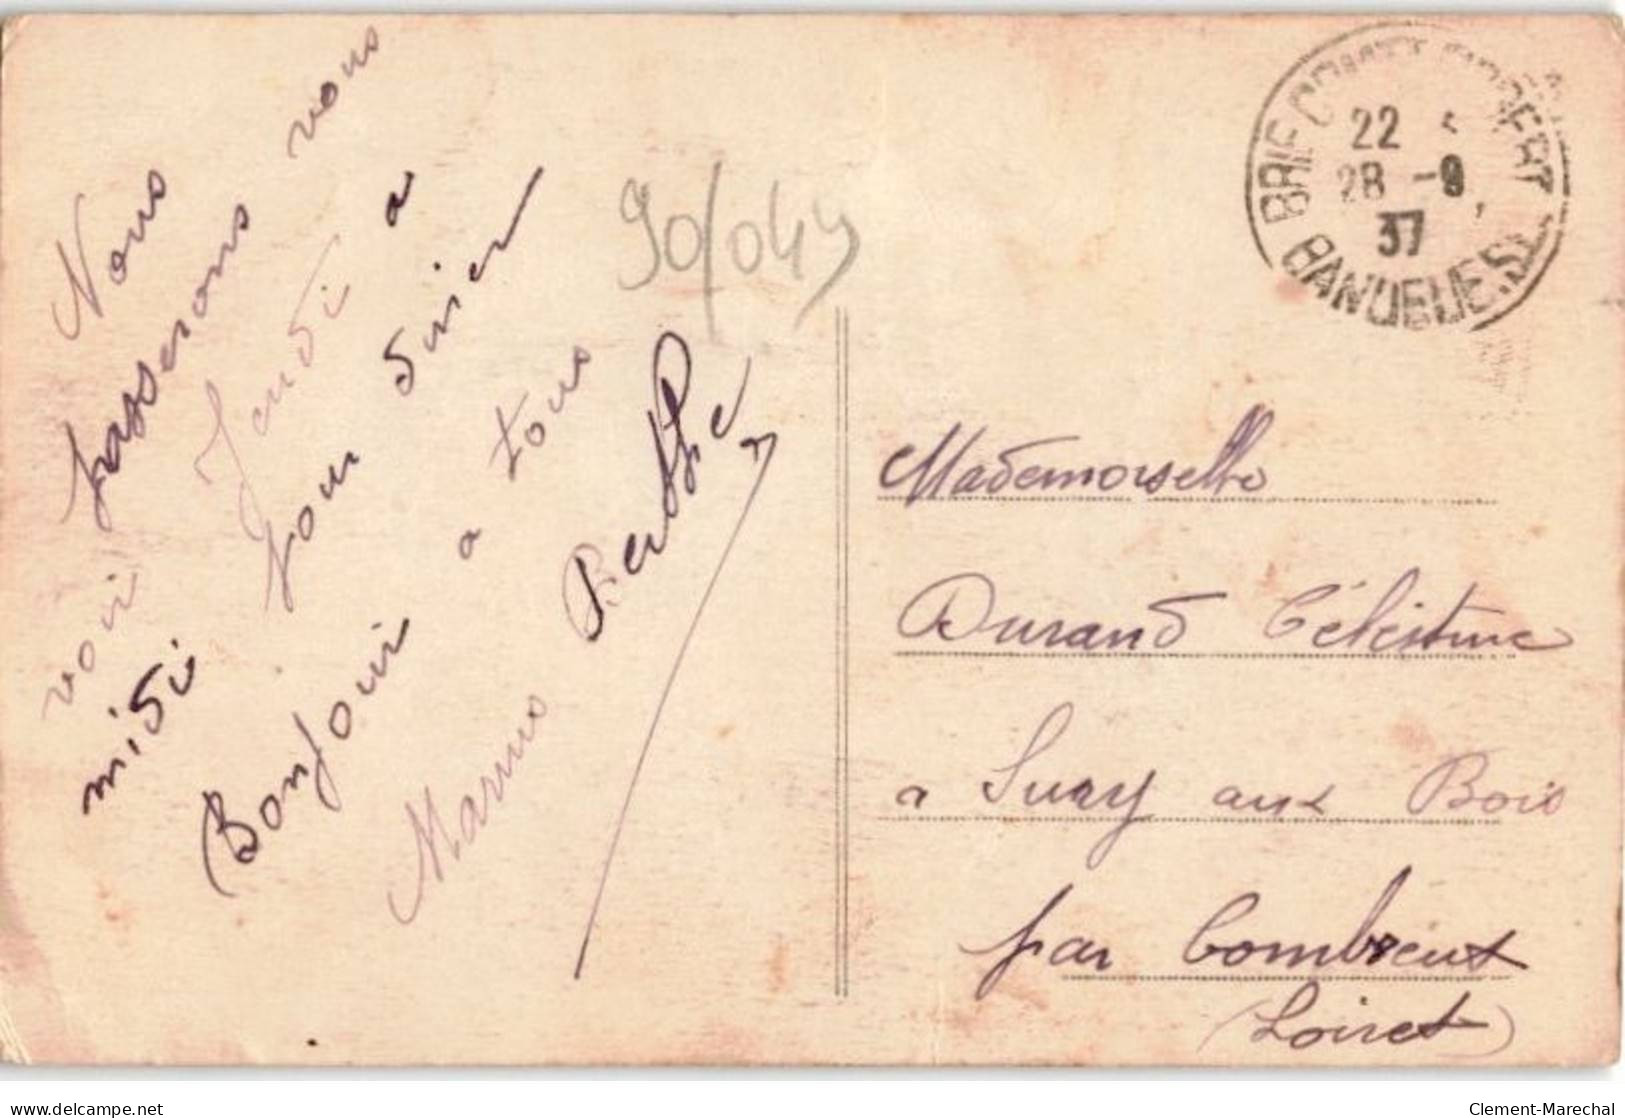 Nous
passerons vous
voir Jeudi a
midi pour diner
Bonjour a tous
Marius Berthe
90/049
BRIE COMTE ROBERT
22
28 -9
37
BANLIEUE
Mademoiselle
Durand Célestine
a Sury aux Bois
par Combreux
(Loiret)
delcampe.net
Clement-Marechal